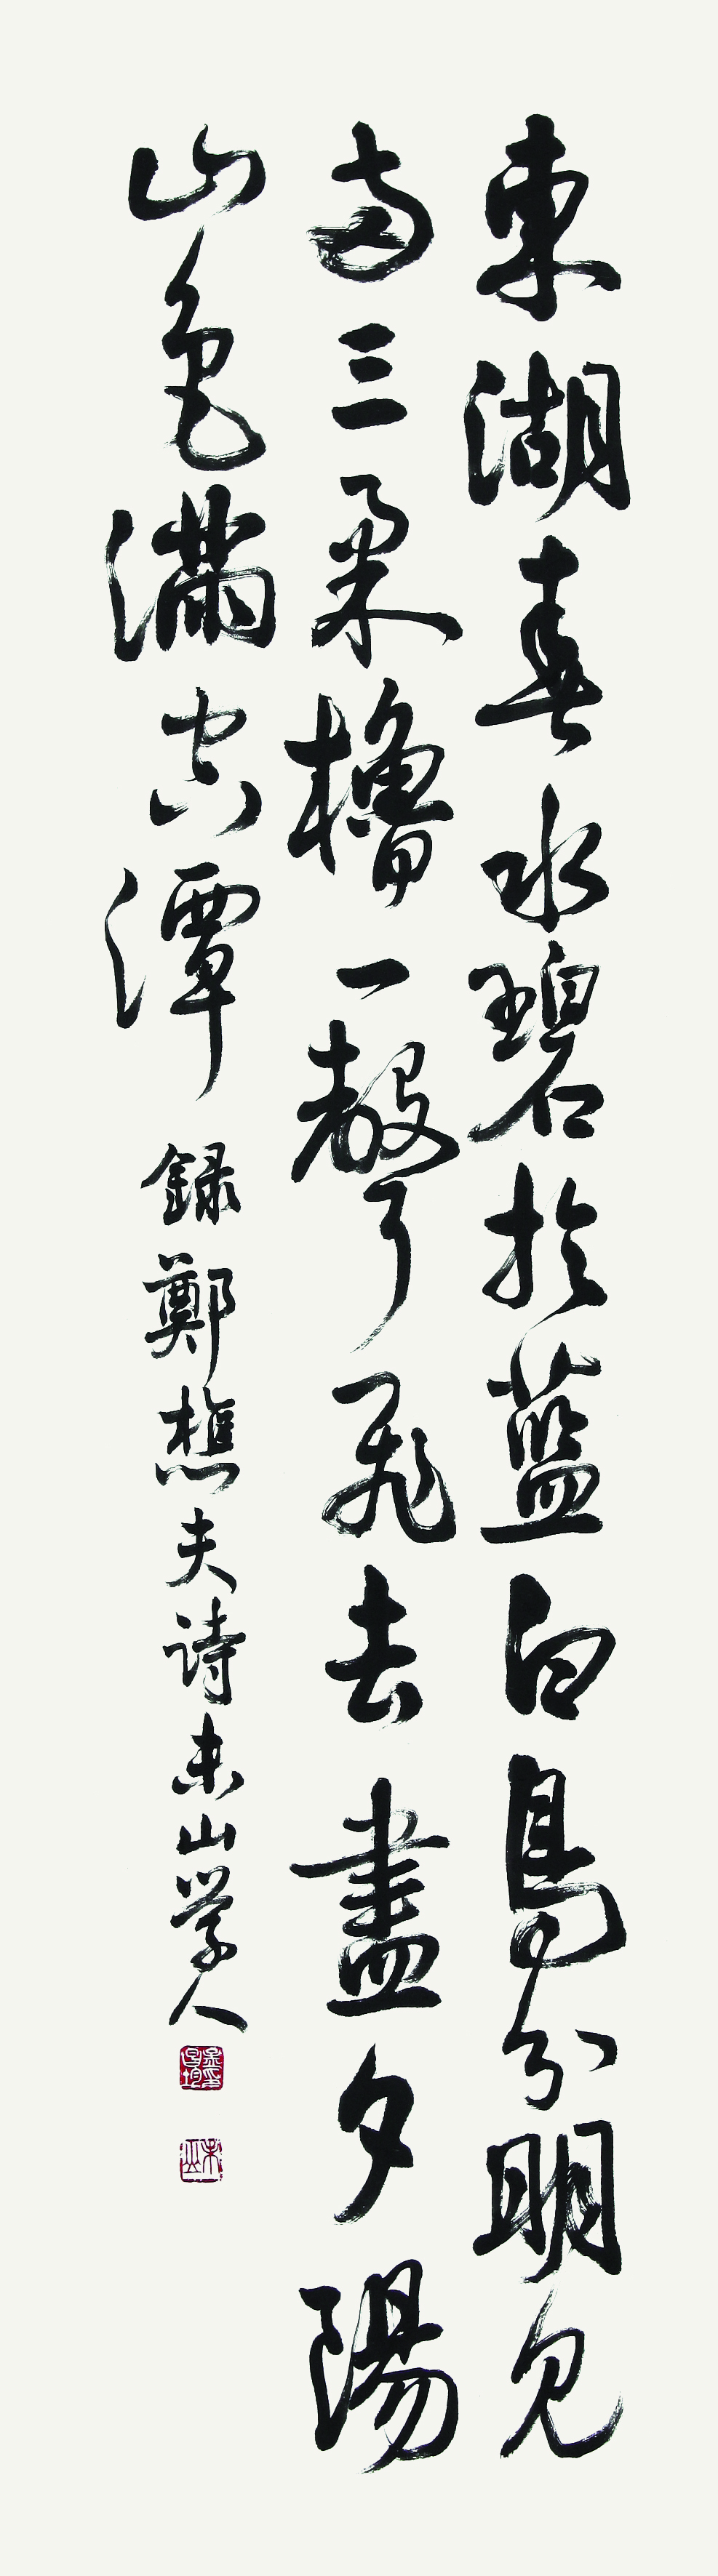 東湖春水碧於藍白鳥分明見
兩三柔櫓一聲飛去盡夕陽
山色滿空潭 録鄭樵夫詩 山学人